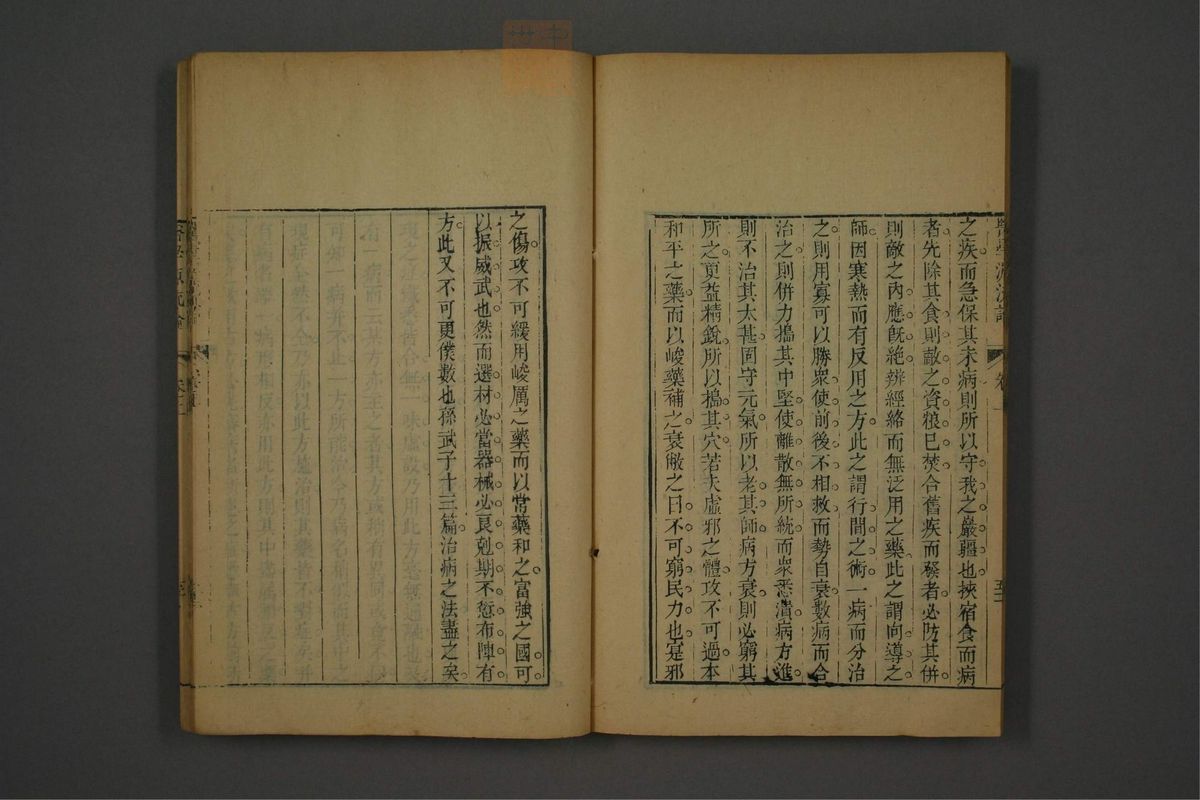 醫學源流論
卷上
之疾而急保其未病則所以守我之巖疆也挾宿食而病
者先除其食則敵之資粮已焚合舊疾而發者必防其併
則敵之內應旣絶辨經絡而無泛用之藥此之謂向導之
師因寒熱而有反用之方此之謂行間之術一病而分治
之則用寡可以勝衆使前後不相救而勢自衰數病而合
治之則併力搗其中堅使離散無所統而衆悉潰病方進
則不治其太甚固守元氣所以老其師病方衰則必窮其
所之更益精銳所以搗其穴若夫虛邪之體攻不可過本
和平之藥而以峻藥補之衰敝之日不可窮民力也寔邪
之傷攻不可緩用峻厲之藥而以常藥和之富強之國可
以振威武也然而選材必當器械必良尅期不愆布陣有
方此又不可更僕數也孫武子十三篇治病之法盡之矣